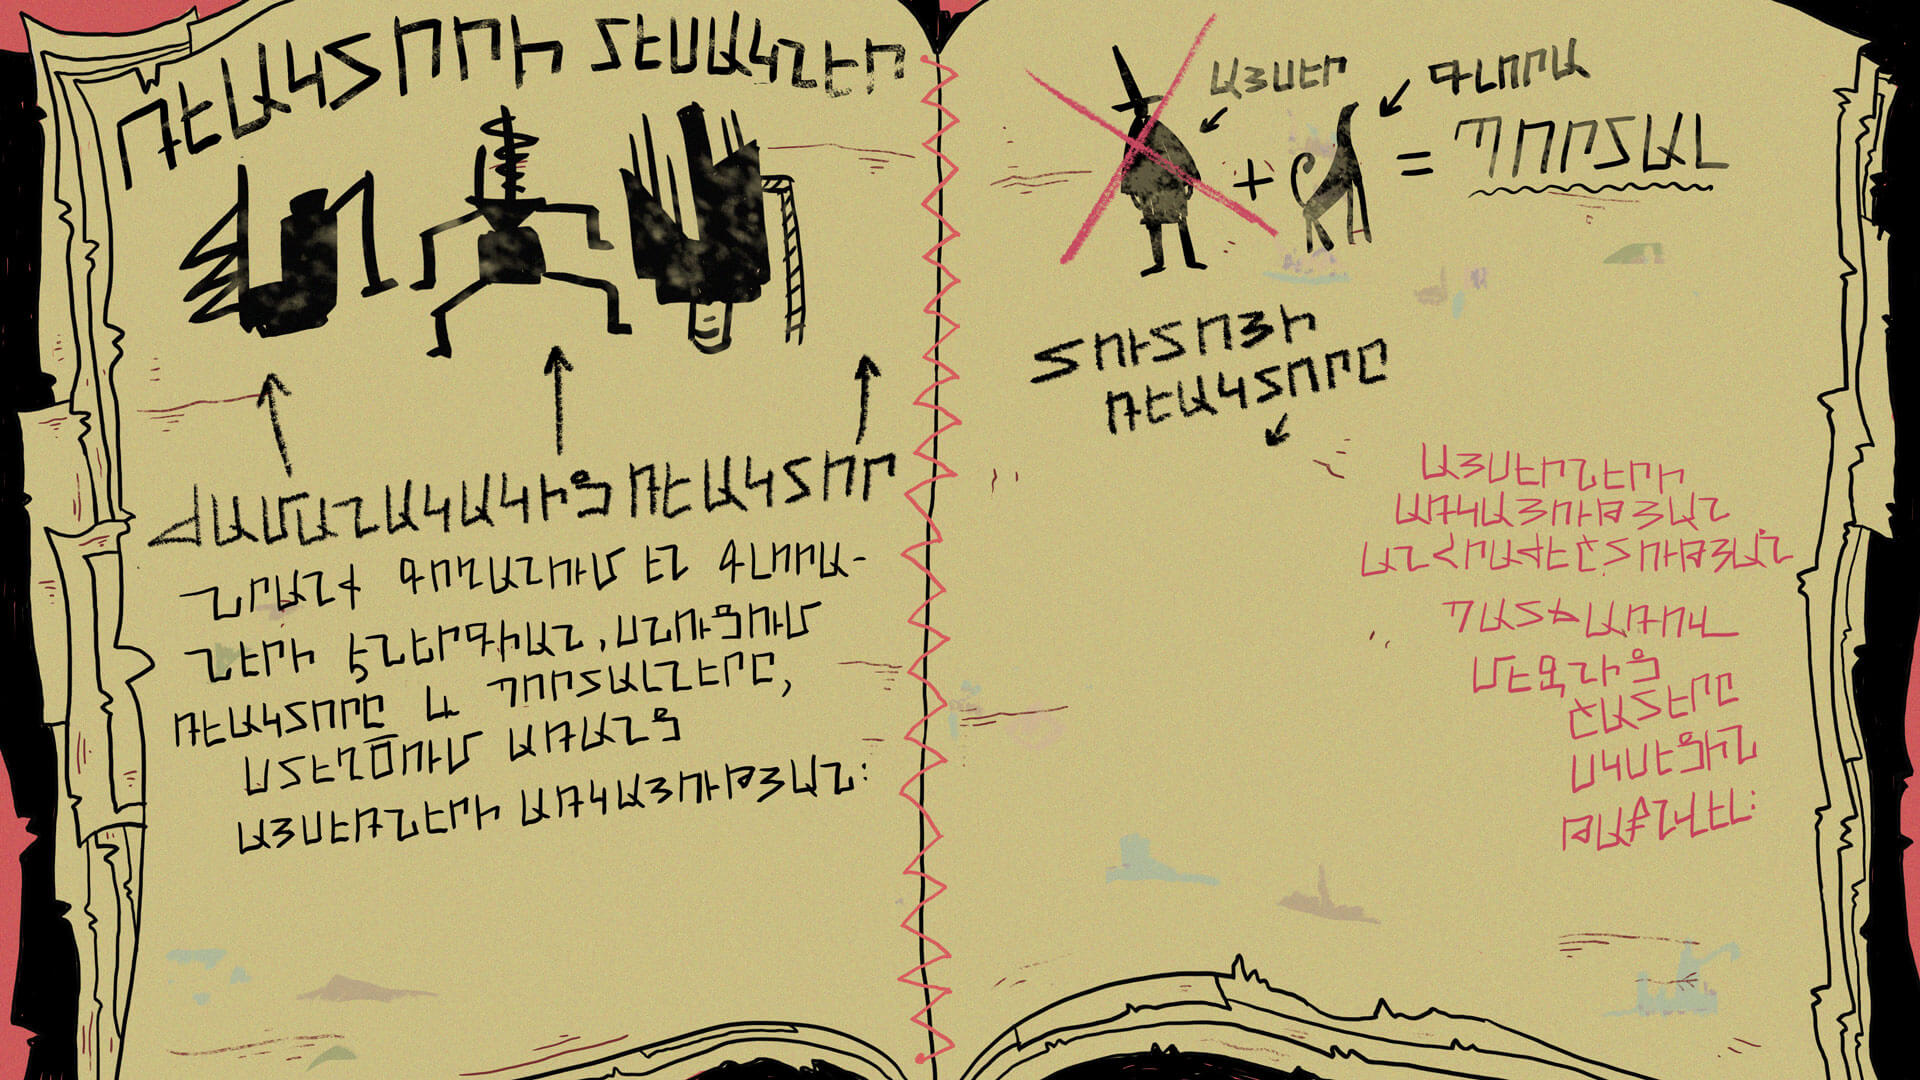 ՌԵԱԿՏՈՐԻ ՏԵՍԱԿՆԵՐ
ԺԱՄԱՆԱԿԱԿԻՑ ՌԵԱԿՏՈՐ
ՆՐԱՆՔ ԳՈՂԱՆՈՒՄ ԵՆ ԳԼՈՐԱ-
ՆԵՐԻ ԷՆԵՐԳԻԱՆ, ՍՆՈՒՑՈՒՄ
ՌԵԱԿՏՈՐԸ և ՊՈՐՏԱԼՆԵՐԸ,
ՍՏԵՂԾՈՒՄ ԱՌԱՆՑ
ԱՅՍԵՌՆԵՐԻ ԱՌԿԱՅՈՒԹՅԱՆ:
ԱՅՍԵՐ
ԳԼՈՐԱ
+ = ՊՈՐՏԱԼ
ՏՈՒՏՈՅԻ
ՌԵԱԿՏՈՐԸ
ԱՅՍԵՐՆԵՐԻ
ԱՌԿԱՅՈՒԹՅԱՆ
ԱՆՀՐԱԺԵՇՏՈՒԹՅԱՆ
ՊԱՏՃԱՌՈՎ
ՄԵԶՆԻՑ
ՇԱՏԵՐԸ
ՍԿՍԵՑԻՆ
ԹԱՔՆՎԵԼ: